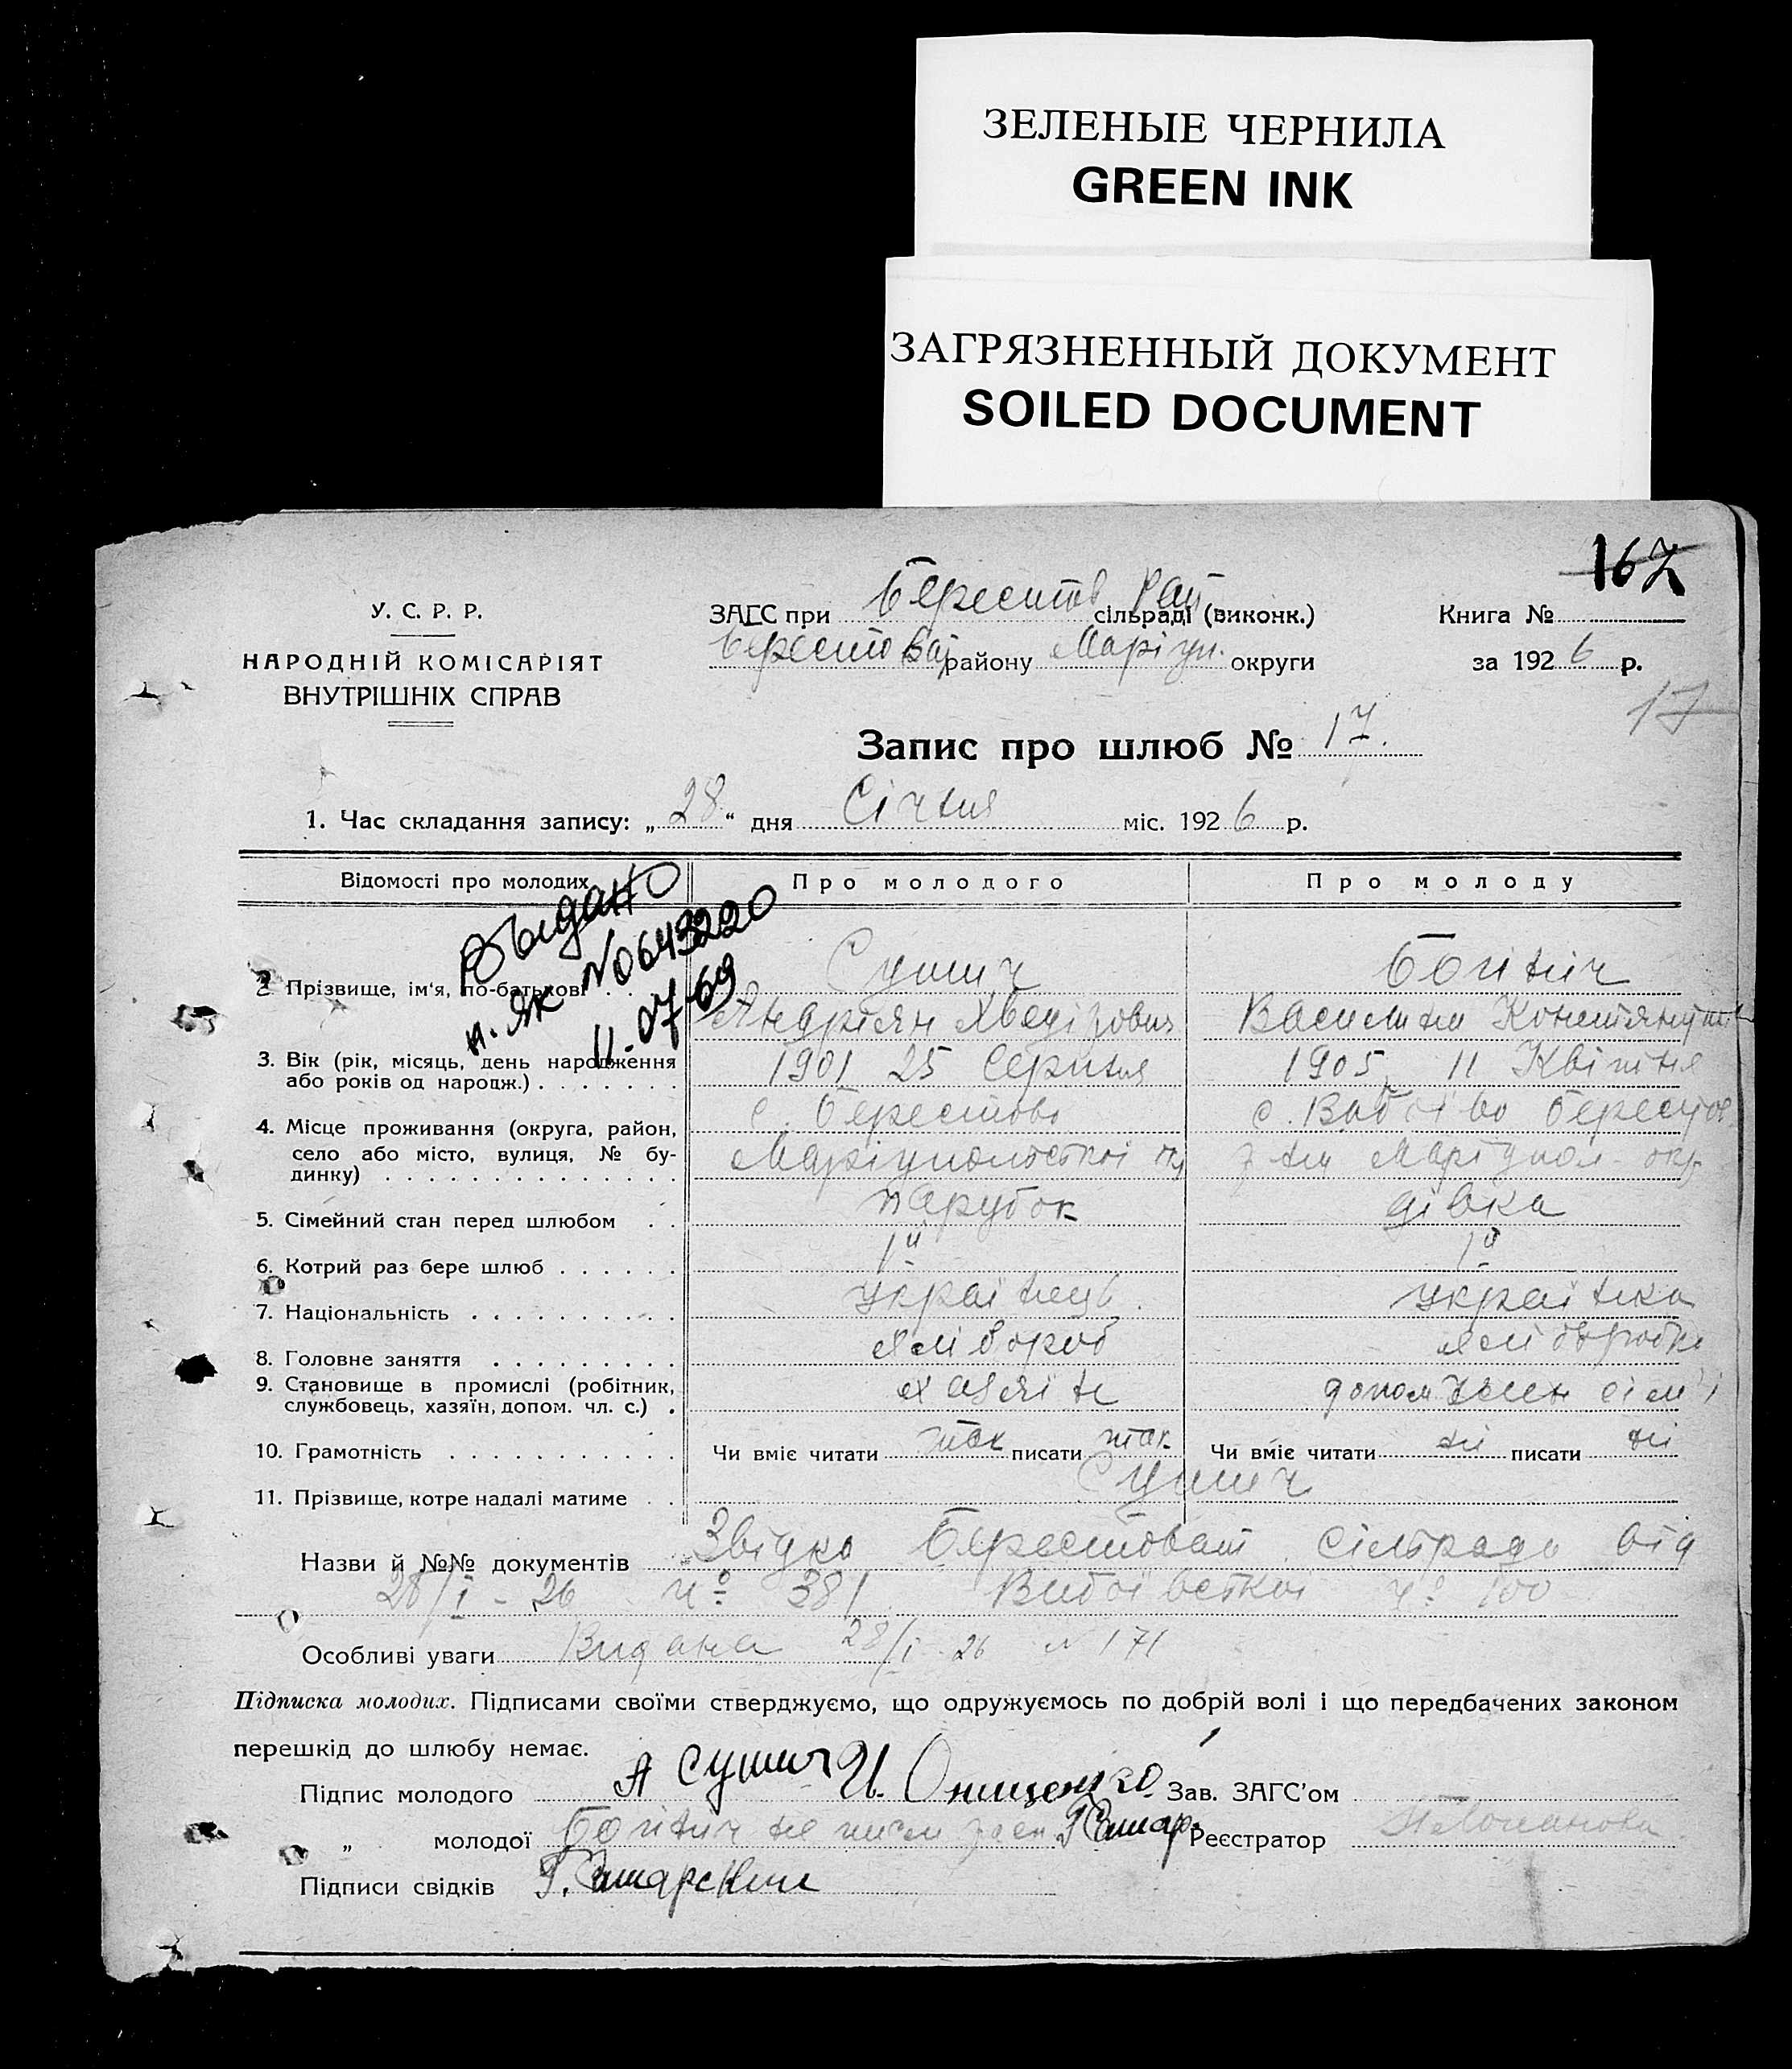 ЗЕЛЕНЫЕ ЧЕРНИЛА
GREEN INK
ЗАГРЯЗНЕННЫЙ ДОКУМЕНТ
SOILED DOCUMENT
167
У. С. Р. Р.
НАРОДНІЙ КОМІСАРІЯТ
ВНУТРІШНІХ СПРАВ
ЗАГС при Берестов Рай сільраді (виконк.)
Берестов району Маріуп. округи
Книга №
за 1926 р.
17
Запис про шлюб № 17.
1. Час складання запису: „28“ дня Січня міс. 1926 р.
Відомості про молодих
Про молодого
Про молоду
Выдано
п. ЯК № 0643220
11-07-69
2. Прізвище, ім'я, по-батькові
Сушич
Андріян
Василина
3. Вік (рік, місяць, день народження або років од народж.)
1901 25 Серпня
1905 11 Квітня
4. Місце проживання (округа, район, село або місто, вулиця, № будинку)
с. Берестово
Маріупольської
с. Берестов
Маріупол. окр
5. Сімейний стан перед шлюбом
парубок
дівка
6. Котрий раз бере шлюб
1й
1й
7. Національність
українець.
українка
8. Головне заняття
хлібороб
хліборобка
9. Становище в промислі (робітник, службовець, хазяїн, допом. чл. с.)
хазяїн
допом член сім'ї
10. Грамотність
Чи вміє читати так писати так
Чи вміє читати ні писати ні
11. Прізвище, котре надалі матиме
Сушич
Назви й №№ документів Звідка Берестоват сільради від
28/I - 26 ч° 381 ч° 100
Особливі уваги Видана 28/I 26 № 171
Підписка молодих. Підписами своїми стверджуємо, що одружуємось по добрій волі і що передбачених законом
перешкід до шлюбу немає.
Підпис молодого А Сушич И. Онищенко Зав. ЗАГС'ом
„ молодої не писм Реєстратор
Підписи свідків